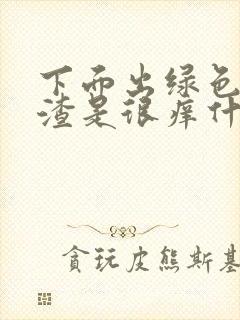 下面出绿色
渣是很痒什
贪玩皮熊斯基